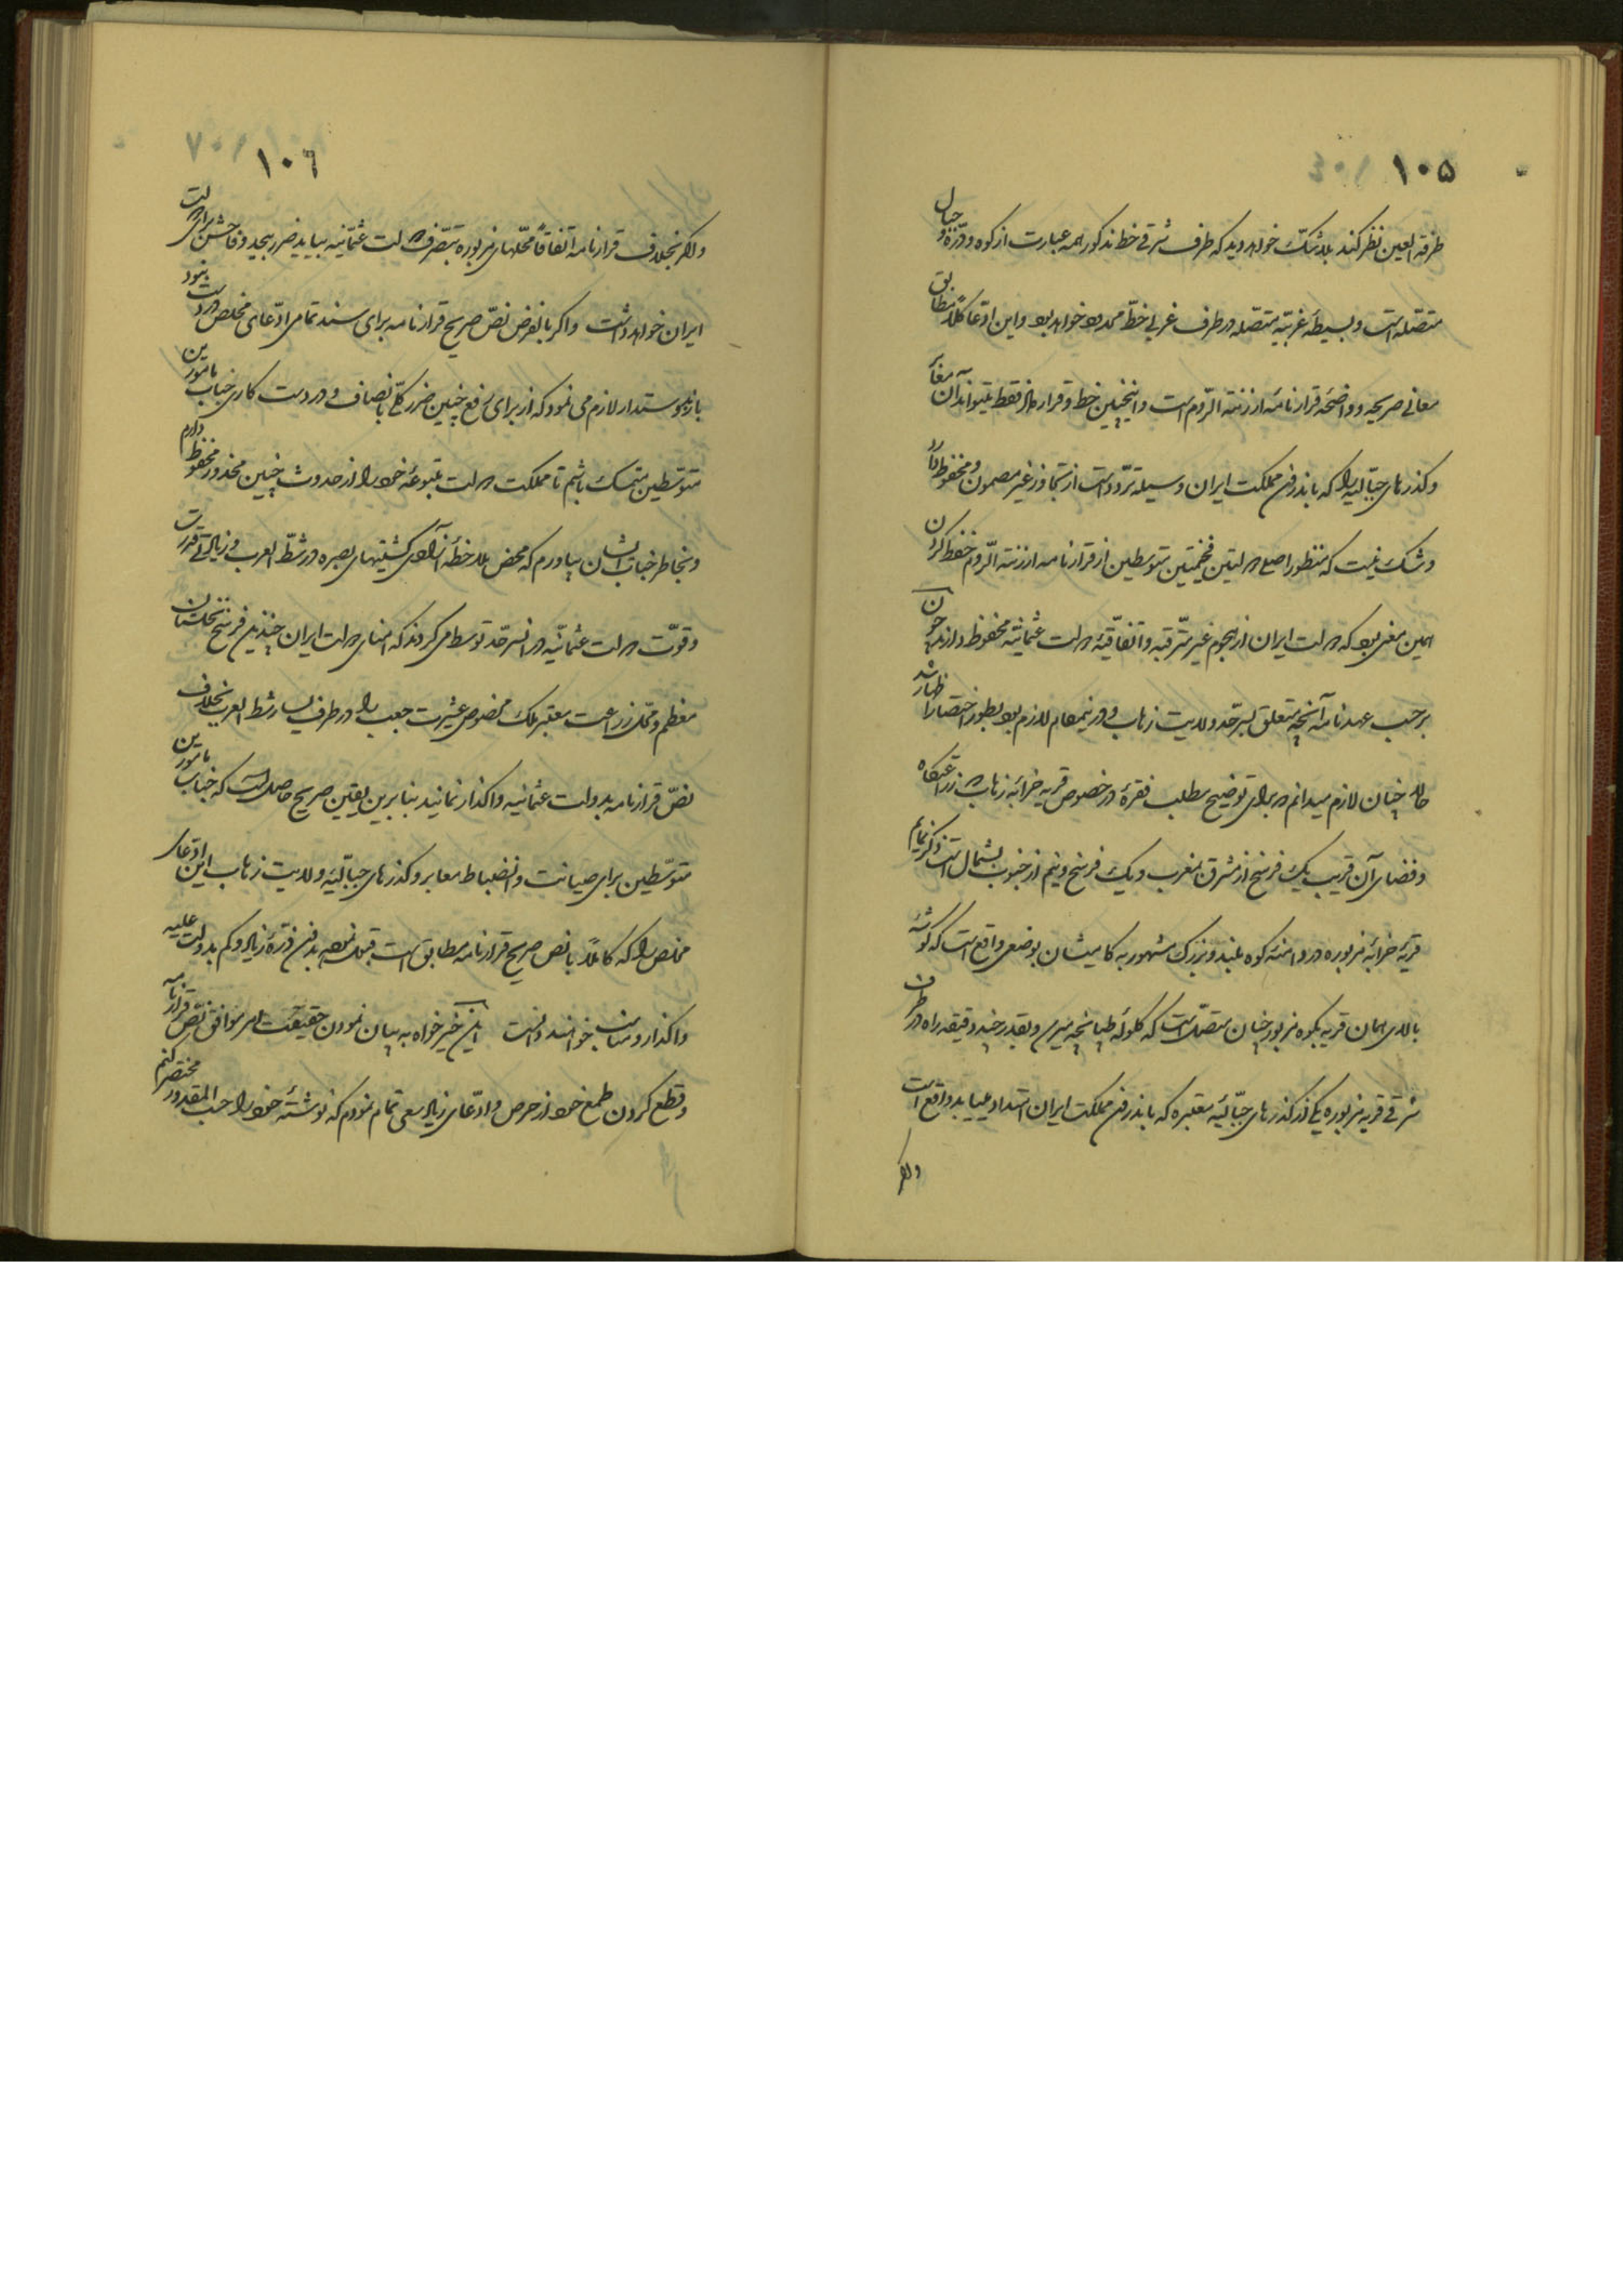 ١٠٥
طرفة العین نظر کند بلاشک خواهد دید که طرف شرقی خط مذکور همه عبارت از کوه و درّه و جبال
متصله است و بسیطهٔ غربیه متصله در طرف غربی خطّ ممدود خواهد بود و این ادعا کلاً مطابق
معانی صریحه و واضحهٔ قرارنامهٔ ارزنة الرّوم است و اینچنین خط و قرار فقط میتواند آن معابر
و گذرهای جبّالیه را که باندرون مملکت ایران وسیله تردّد است از تجاوز غیر مصون و محفوظ دارد
و شک نیست که منظور اصلی دولتین فخیمتین متوسطین از قرارنامه ارزنة الرّوم حفظ کردن
همین معنی بود که دولت ایران از هجوم غیر مترقبه و اتفاقیّهٔ دولت عثمانیّه محفوظ دارند چون
بر حسب عهدنامه آنچه متعلق بسرحدّ ولایت زهاب و در اینمقام لازم بود بطور اختصار اظهار شد
حالا چنان لازم میدانم که برای توضیح مطلب فقرهٔ در خصوص قریه خرابه زهاب که زراعتگاه
و فضای آن قریب یک فرسخ از مشرق بمغرب و یک فرسخ و نیم از جنوب بشمال است ذکر نمایم
قریهٔ خرابهٔ مزبوره در دامنهٔ کوه بلند و بزرگ مشهور به کامیشان بوضعی واقع است که گوشهٔ
بالای همان قریه بکوه مزبور چنان متصل است که گلولهٔ طپانچه میرسد و بقدر چند دقیقه راه در طرف
شرقی قریه مزبوره یکی از گذرهای جبّالیّهٔ معتبره که باندرون مملکت ایران امتداد مییابد واقع است
و اگر
١٠٦
و اگر بخلاف قرارنامه اتفاقاً محلّهای مزبوره بتصرف دولت عثمانیه بیاید ضرر بیحد و فاحش برای دولت
ایران خواهد داشت و اگر بالفرض نصّ صریح قرارنامه برای سند تمامی ادّعای مخلص درست نبود
باز بدوستدار لازم می نمود که از برای رفع چنین ضرر کلّی بانصاف و درست کاری جناب مأمورین
متوسطین متمسک باشم تا مملکت دولت متبوعهٔ خود را از حدوث چنین محذور محفوظ دارم
و بخاطر جنابان ایشان بیاورم که محض ملاحظهٔ آزادی کشتیهای بصره در شطّ العرب و زیادتی قدرت
و قوّت دولت عثمانیّه در آنسرحدّ توسط میکردند که امنای دولت ایران چندین فرسخ نخلستان
معظم و محل زراعت معتبر ملک مخصوص عشیرت چعب را در طرف یسار شط العرب بخلاف
نصّ قرارنامه بدولت عثمانیه واگذار نمایند بنابرین یقین صریح حاصل است که جناب مأمورین
متوسّطین برای صیانت و انضباط معابر و گذرهای جبّالیّهٔ ولایت زهاب این ادّعای
مخلص را که کاملاً با نص صریح قرارنامه مطابق است قبول نموده بدون ذرّهٔ زیاد و کم بدولت علیه
واگذار و مناسب خواهند دانست این خیرخواه به بیان نمودن حقیقت امر موافق نصّ قرارنامه
و قطع کردن طمع خود از حرص و ادّعای زیاد سعی تمام نمودم که نوشتهٔ خود را حسب المقدور مختصر کنم